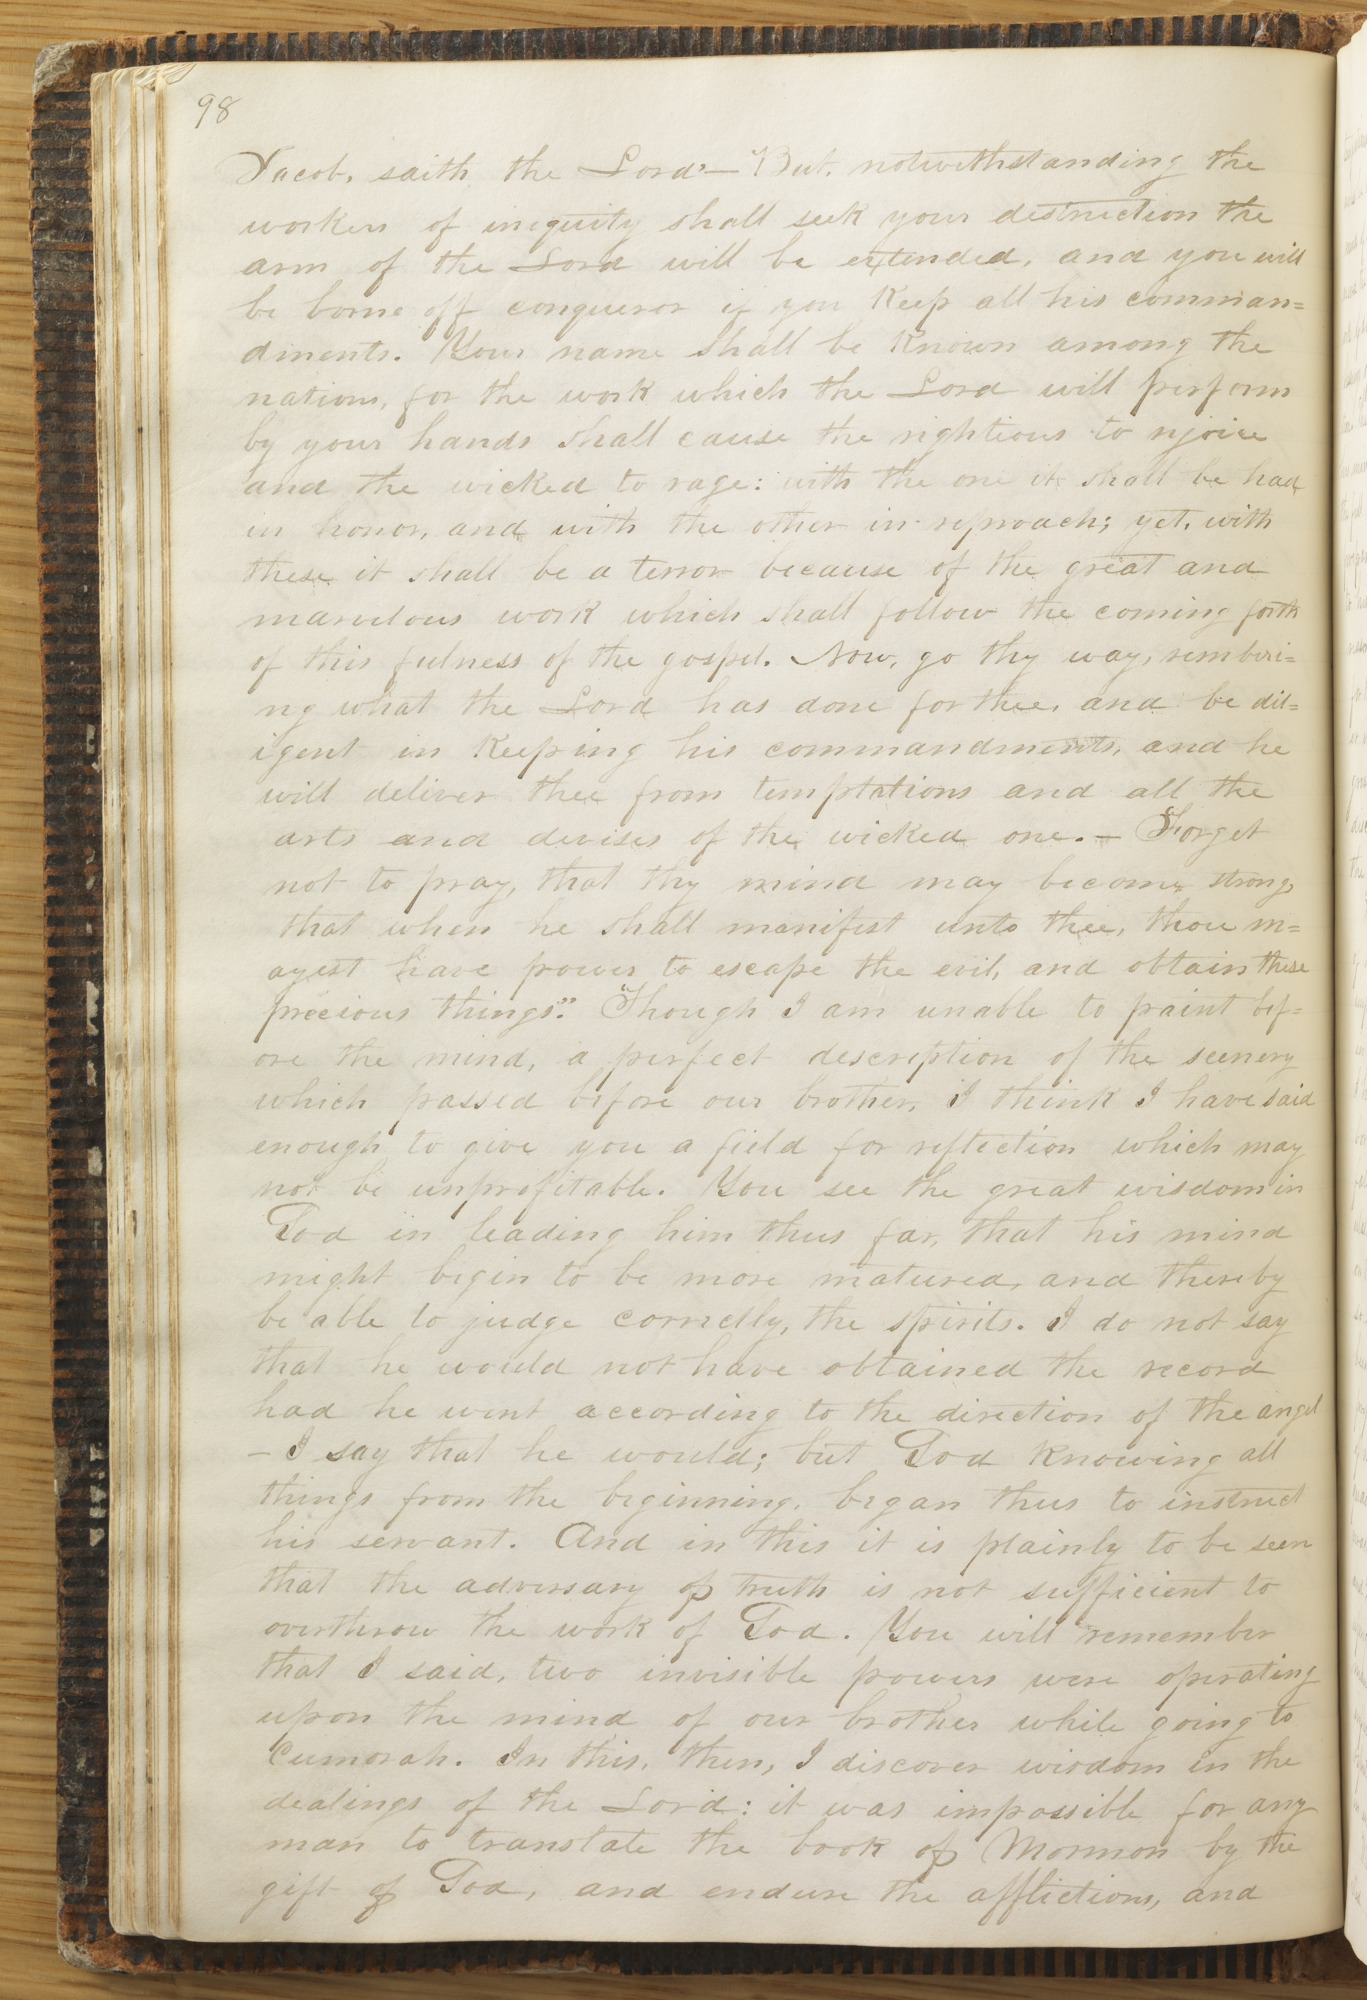 98
Jacob, saith the Lord".— "But, notwithstanding the
workers of iniquity shall seek your destruction the
arm of the Lord will be extended, and you will
be borne off conqueror if you keep all his comman=
dments. Your name shall be known among the
nations, for the work which the Lord will perform
by your hands shall cause the rightious to rejoice
and the wicked to rage: with the one it shall be had
in honor, and with the other in reproach; yet, with
these it shall be a terror because of the great and
marvelous work which shall follow the coming forth
of this fulness of the gospel. Now, go thy way, remberi=
ng what the Lord has done for thee, and be dil=
igent in keeping his commandments, and he
will deliver thee from temptations and all the
arts and devises of the wicked one.— Forget
not to pray, that thy mind may become strong,
that when he shall manifest unto thee, thou m=
ayest have power to escape the evil, and obtain these
precious things." Though I am unable to paint bef=
ore the mind, a perfect description of the scenery
which passed before our brother, I think I have said
enough to give you a field for reflection which may
not be unprofitable. You see the great wisdom in
God in leading him thus far, that his mind
might begin to be more matured, and thereby
be able to judge correctly, the spirits. I do not say
that he would not have obtained the record
had he went according to the direction of the angel
— I say that he would; but God knowing all
things from the beginning, began thus to instruct
his servant. And in this it is plainly to be seen
that the adversary of truth is not sufficient to
overthrow the work of God. You will remember
that I said, two invisible powers were operating
upon the mind of our brother while going to
Cumorah. In this, then, I discover wisdom in the
dealings of the Lord: it was impossible for any
man to translate the book of Mormon by the
gift of God, and endure the afflictions, and